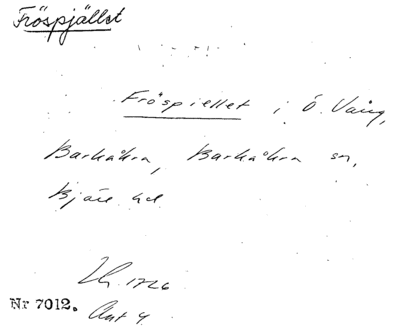 Fröspjället
Fröspiellet i Ö. Vång,
Barkåkra, Barkåkra sn,
Bjäre hd
Lh. 1726
Nr 7012. Akt 4.